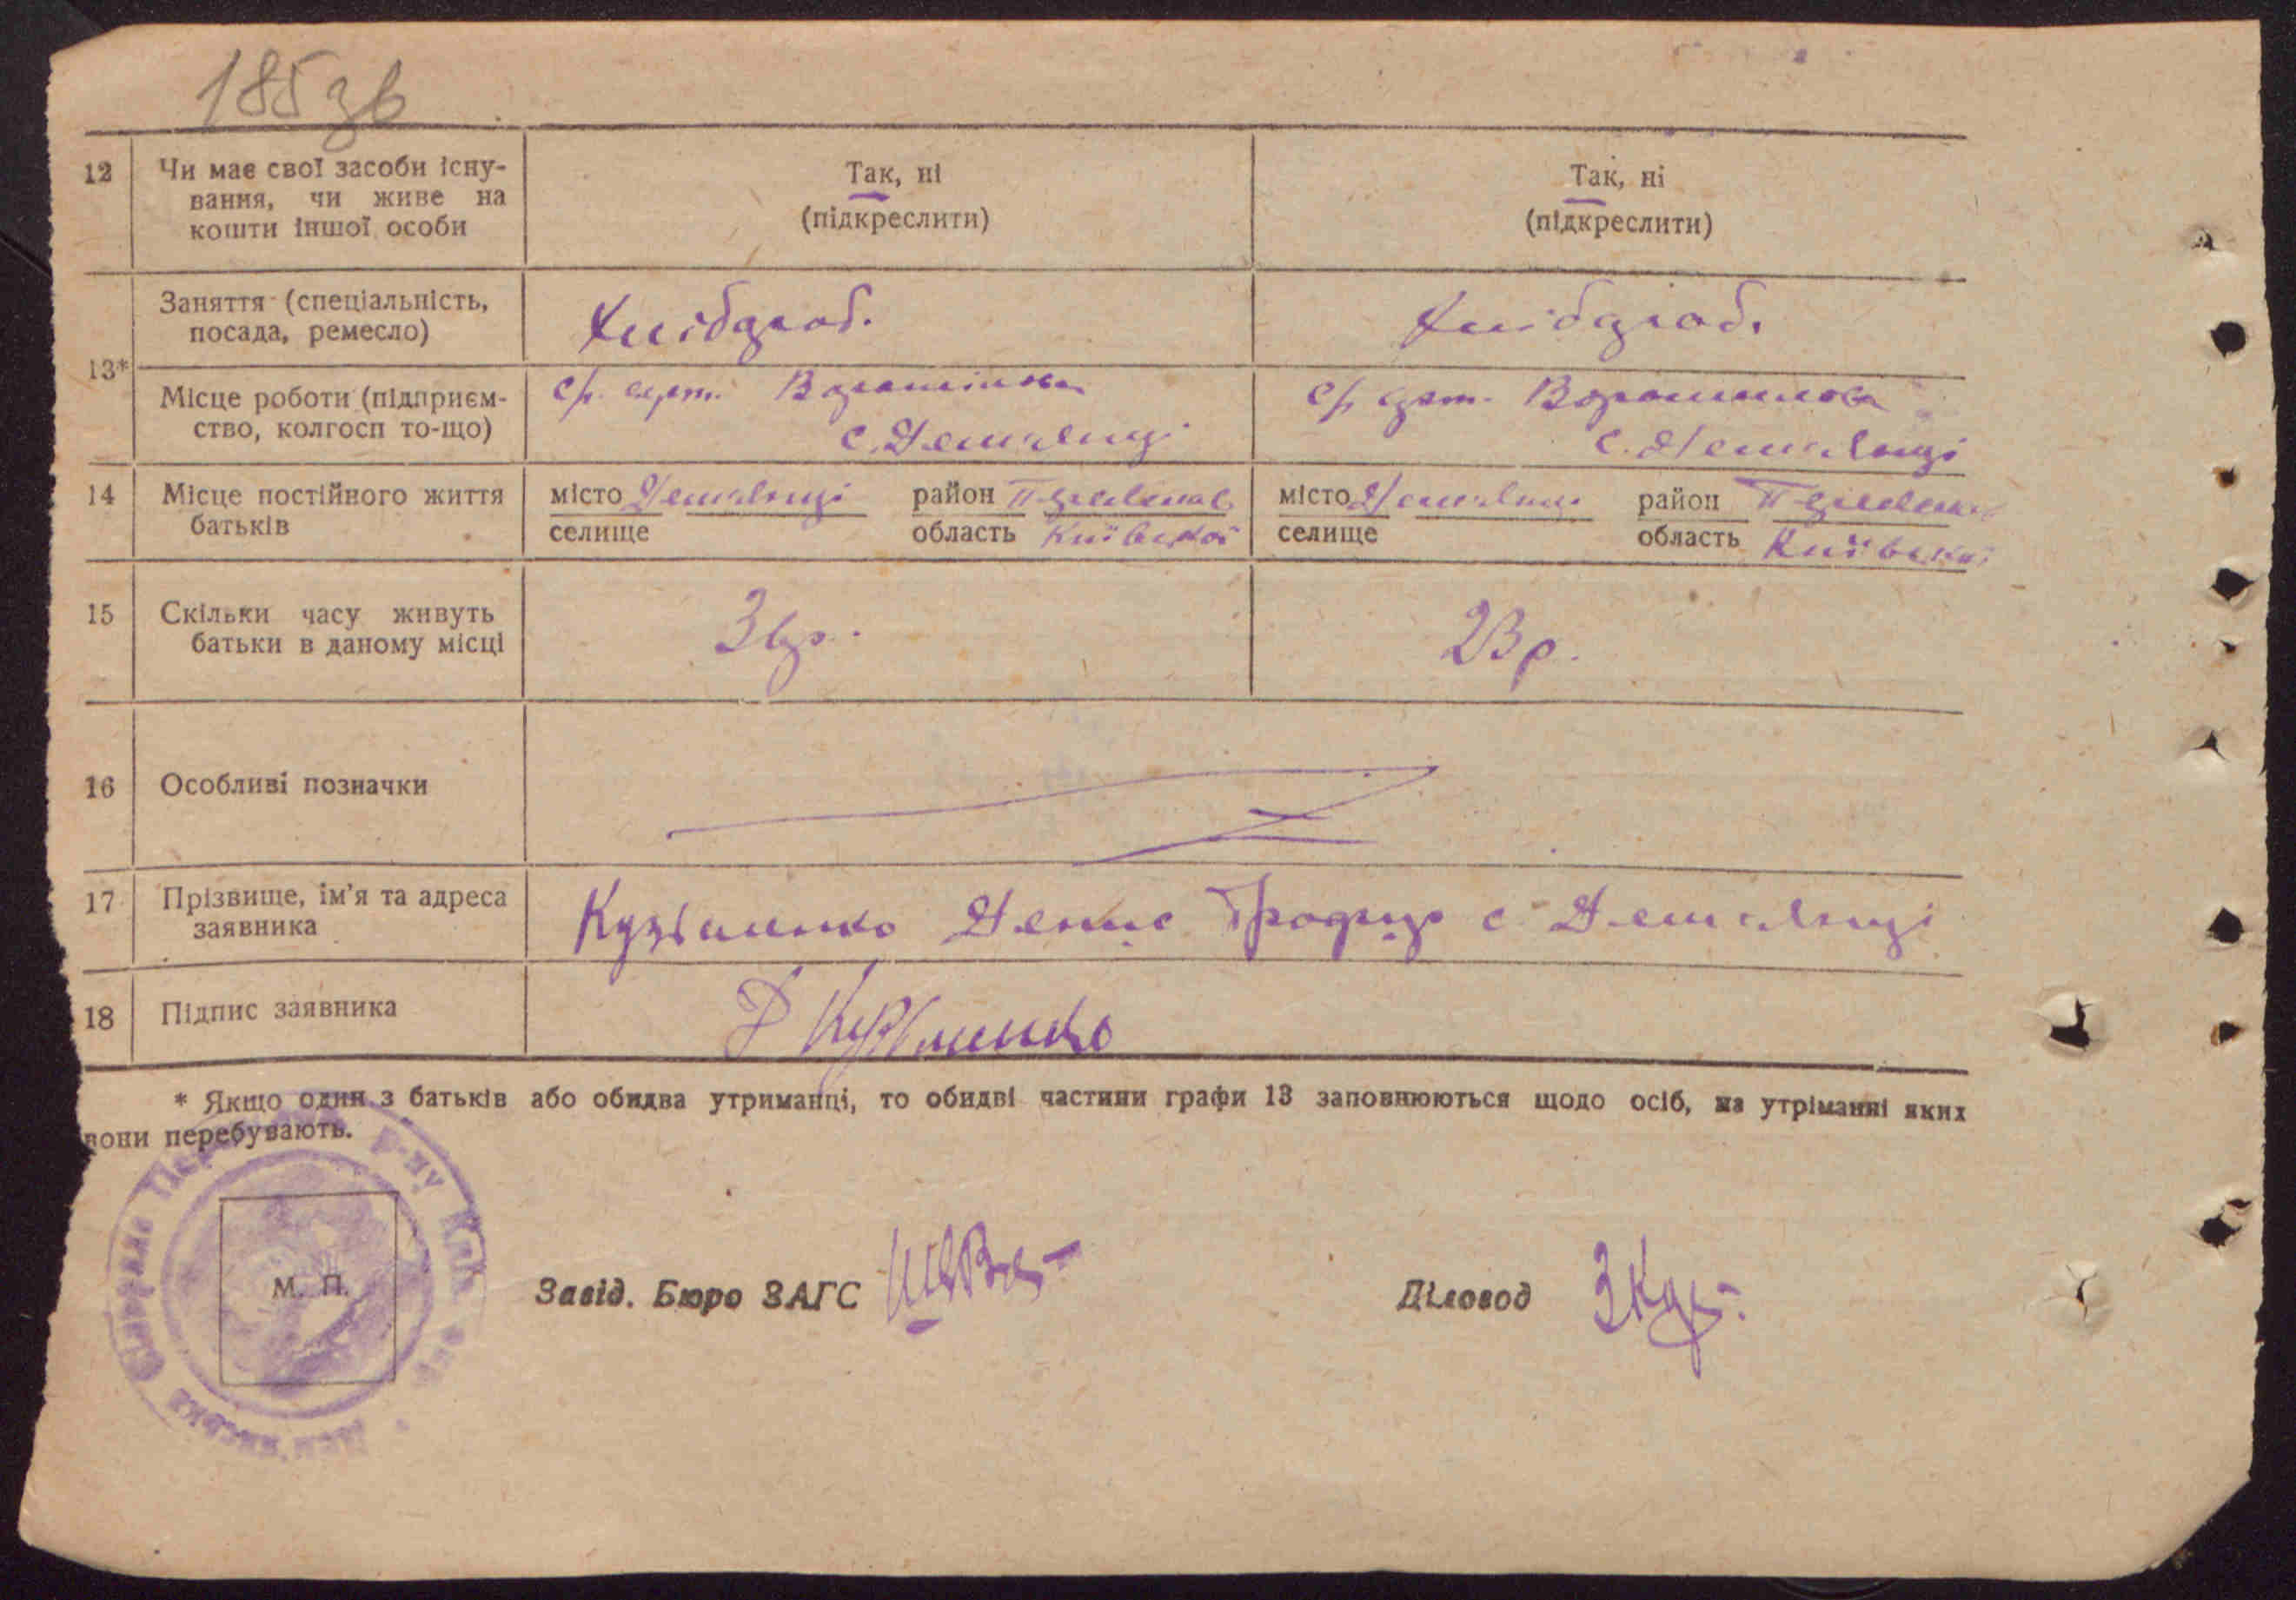 185зв
12 Чи має свої засоби існу-
вання, чи живе на
кошти іншої особи
Так, ні
(підкреслити)
Так, ні
(підкреслити)
13*
Заняття (спеціальність,
посада, ремесло)
Хлібороб.
Хлібороб.
Місце роботи (підприєм-
ство, колгосп то-що)
с/г. арт. Ворошилова
с. Дем'янці
с/г арт. Ворошилова
с. Дем'янці
14 Місце постійного життя
батьків
місто Дем'янці район
селище область Київської
місто Дем'янці район
селище область Київської
15 Скільки часу живуть
батьки в даному місці
23р.
16 Особливі позначки
17 Прізвище, ім'я та адреса
заявника
Кузьменко Денис с Дем'янці
18 Підпис заявника
Д Кузьменко
* Якщо один з батьків або обидва утриманці, то обидві частини графи 13 заповнюються щодо осіб, на утріманні яких
вони перебувають.
М. П.
р-ну
Завід. Бюро ЗАГС
Діловод